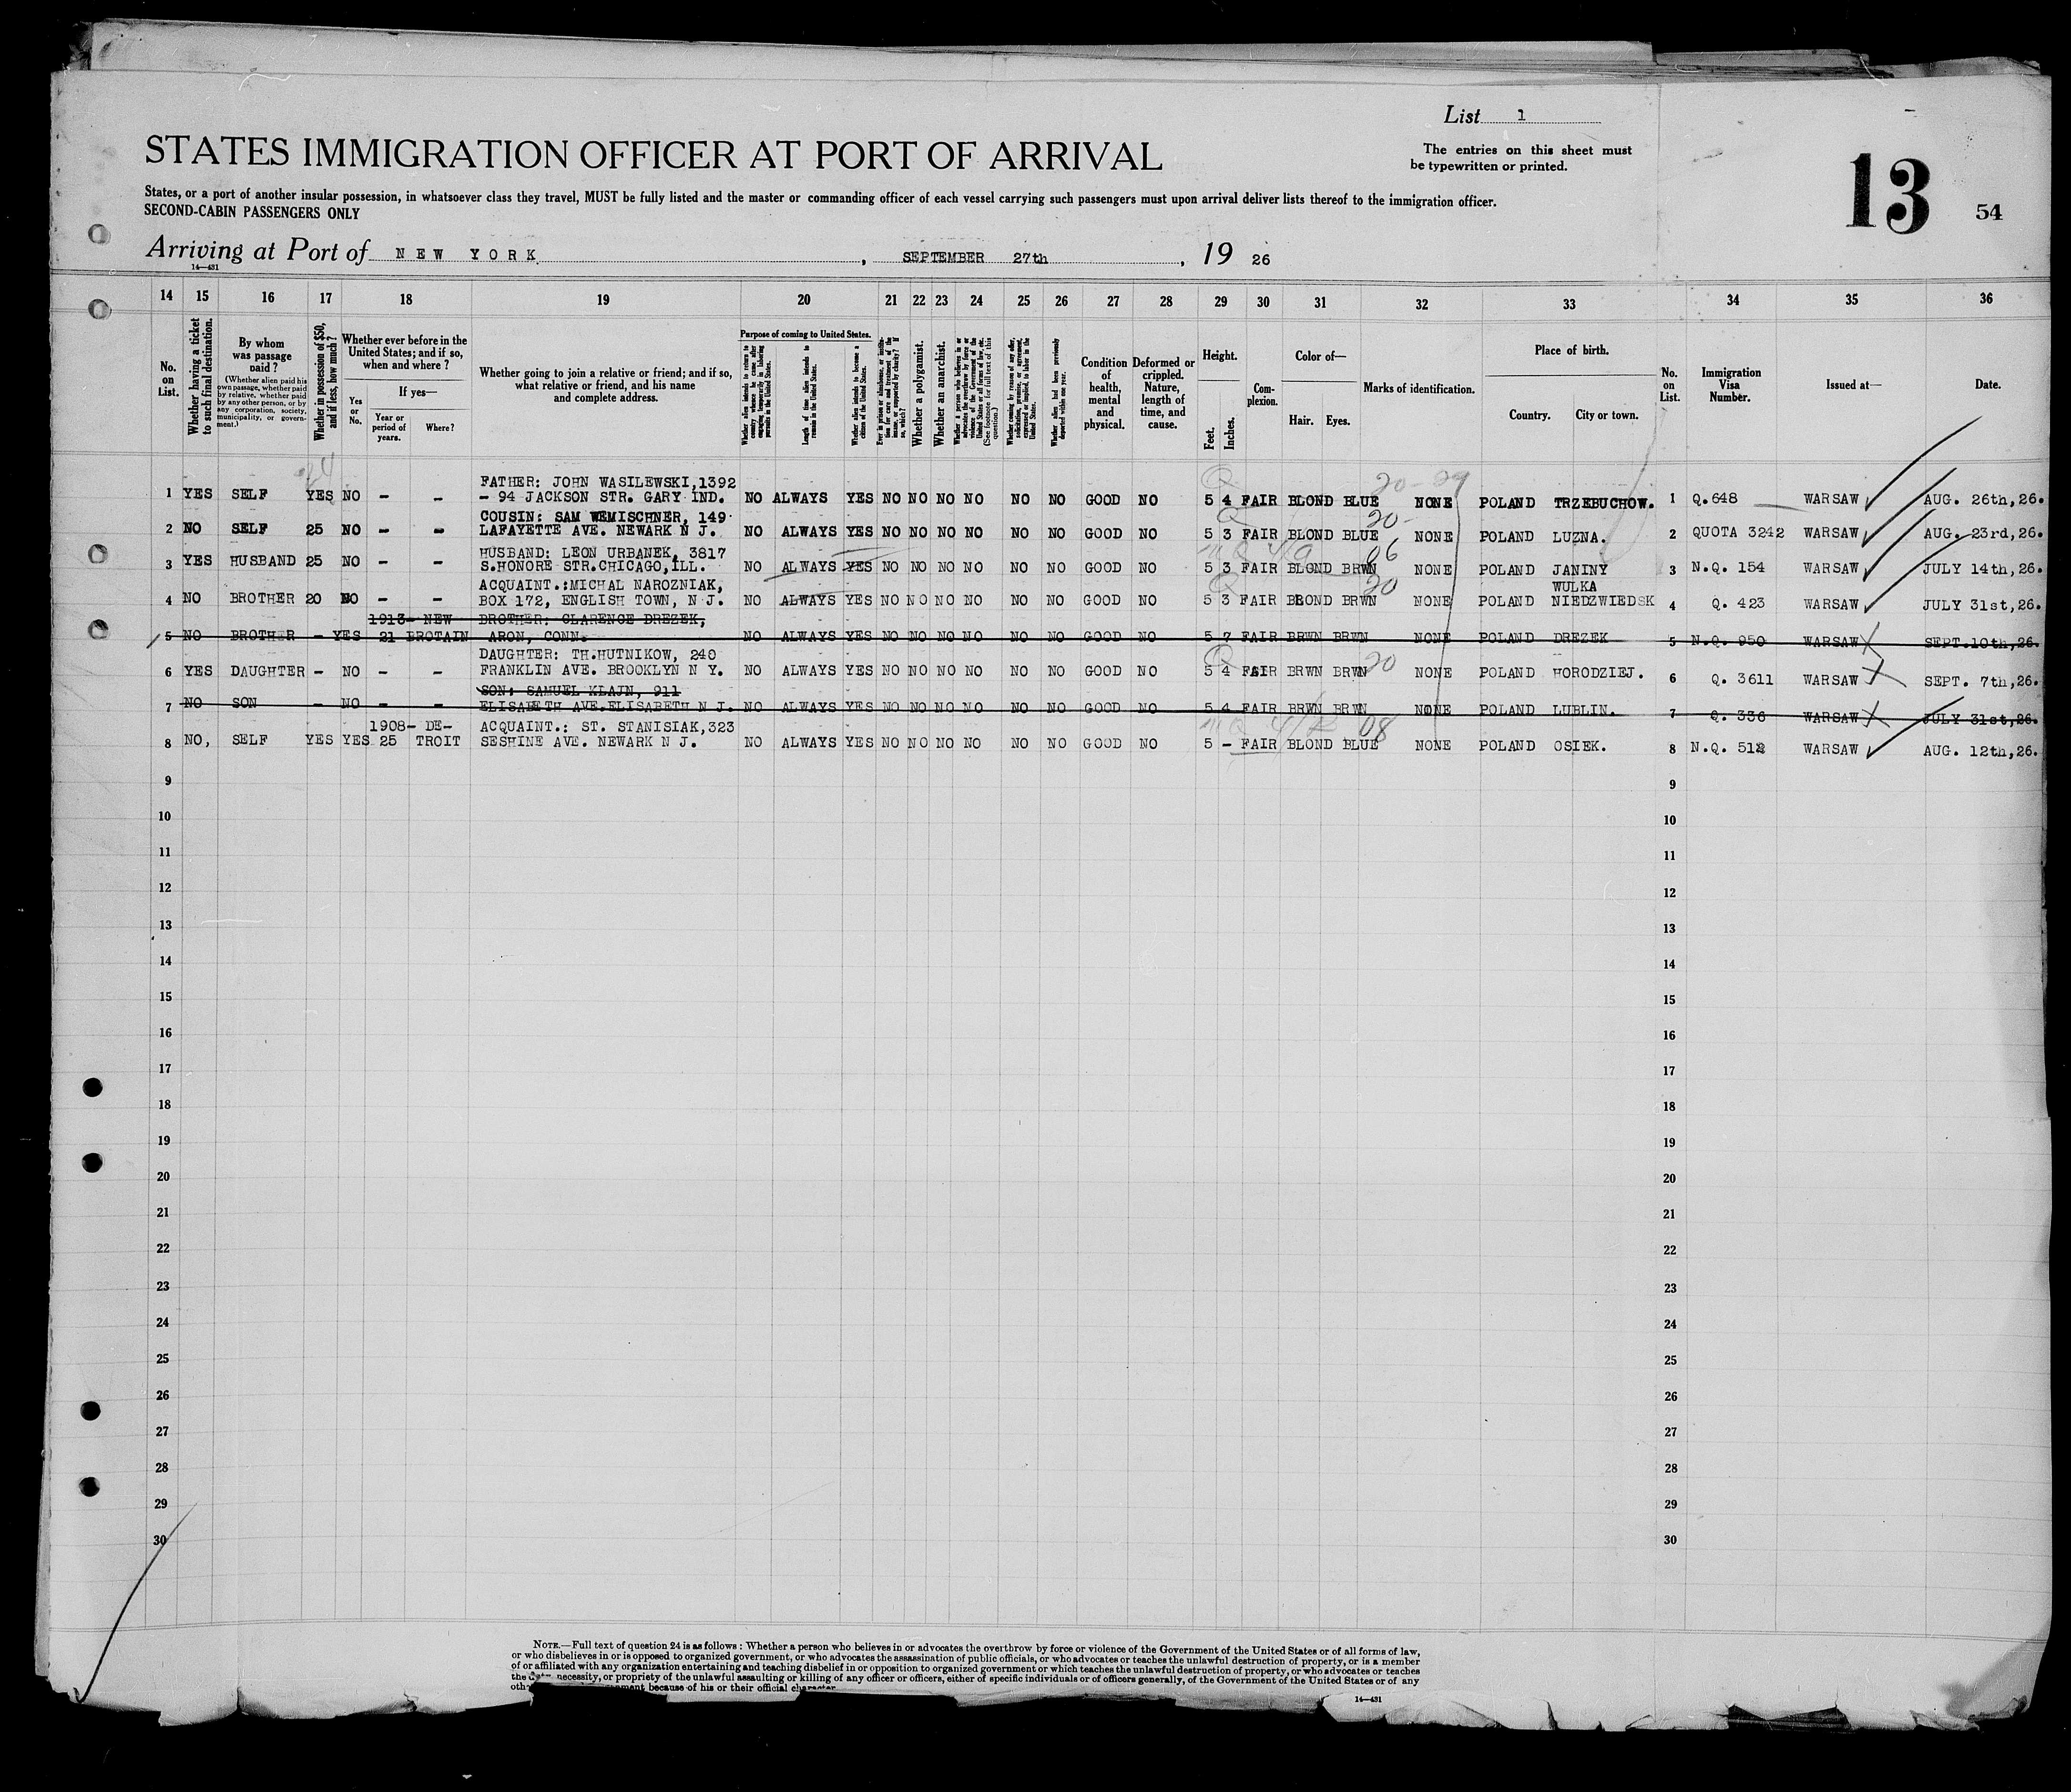 List 1
STATES IMMIGRATION OFFICER AT PORT OF ARRIVAL
The entries on this sheet must
be typewritten or printed.
13 54
States, or a port of another insular possession, in whatsoever class they travel, MUST be fully listed and the master or commanding officer of each vessel carrying such passengers must upon arrival deliver lists thereof to the immigration officer.
SECOND-CABIN PASSENGERS ONLY
Arriving at Port of NEW YORK, SEPTEMBER 27th, 19 26
14—431
14 15 16 17 18 19 20 21 22 23 24 25 26 27 28 29 30 31 32 33 34 35 36
No. on List.
Whether having a ticket to such final destination.
By whom was passage paid?
(Whether alien paid his own passage, whether paid by relative, whether paid by any other person, or by any corporation, society, municipality, or government.)
Whether in possession of $50, and if less, how much?
Whether ever before in the United States; and if so, when and where?
Yes or No.
If yes—
Year or period of years.
Where?
Whether going to join a relative or friend; and if so, what relative or friend, and his name and complete address.
Purpose of coming to United States.
Whether alien intends to return to country whence he came after engaging temporarily in laboring pursuits in the United States.
Length of time alien intends to remain in the United States.
Whether alien intends to become a citizen of the United States.
Ever in prison or almshouse, or institution for care and treatment of the insane, or supported by charity? If so, which?
Whether a polygamist.
Whether an anarchist.
Whether a person who believes in or advocates the overthrow by force or violence of the Government of the United States or all forms of law, etc. (See footnote for full text of this question.)
Whether coming by reason of any offer, solicitation, promise, or agreement, expressed or implied, to labor in the United States.
Whether alien had been previously deported within one year.
Condition of health, mental and physical.
Deformed or crippled. Nature, length of time, and cause.
Height.
Feet. Inches.
Complexion.
Color of—
Hair. Eyes.
Marks of identification.
Place of birth.
Country. City or town.
No. on List.
Immigration Visa Number.
Issued at—
Date.
24 Q 20-29
FATHER: JOHN WASILEWSKI,1392
1 YES SELF YES NO - - - 94 JACKSON STR. GARY IND. NO ALWAYS YES NO NO NO NO NO NO GOOD NO 5 4 FAIR BLOND BLUE NONE POLAND TRZEBUCHOW. 1 Q.648 WARSAW AUG. 26th,26.
COUSIN: SAM WEMISCHNER, 149 Q 20-
2 NO SELF 25 NO - - LAFAYETTE AVE. NEWARK N J. NO ALWAYS YES NO NO NO NO NO NO GOOD NO 5 3 FAIR BLOND BLUE NONE POLAND LUZNA. 2 QUOTA 3242 WARSAW AUG. 23rd,26.
HUSBAND: LEON URBANEK, 3817 NQ 4/a 06
3 YES HUSBAND 25 NO - - S.HONORE STR.CHICAGO,ILL. NO ALWAYS YES NO NO NO NO NO NO GOOD NO 5 3 FAIR BLOND BRWN NONE POLAND JANINY 3 N.Q. 154 WARSAW JULY 14th,26.
ACQUAINT.:MICHAL NAROZNIAK, Q 20 WULKA
4 NO BROTHER 20 NO - - BOX 172, ENGLISH TOWN, N J. NO ALWAYS YES NO NO NO NO NO NO GOOD NO 5 3 FAIR BLOND BRWN NONE POLAND NIEDZWIEDSK 4 Q. 423 WARSAW JULY 31st,26.
1913- NEW BROTHER: CLARENCE DREZEK,
5 NO BROTHER - YES 21 BROTAIN ARON, CONN. NO ALWAYS YES NO NO NO NO NO NO GOOD NO 5 7 FAIR BRWN BRWN NONE POLAND DREZEK 5 N.Q. 950 WARSAW X SEPT.10th,26.
DAUGHTER: TH.HUTNIKOW, 240 Q 20
6 YES DAUGHTER - NO - - FRANKLIN AVE. BROOKLYN N Y. NO ALWAYS YES NO NO NO NO NO NO GOOD NO 5 4 FAIR BRWN BRWN NONE POLAND HORODZIEJ. 6 Q. 3611 WARSAW SEPT. 7th,26.
SON: SAMUEL KLAJN, 911
7 NO SON - NO - - ELISABETH AVE.ELISABETH N J. NO ALWAYS YES NO NO NO NO NO NO GOOD NO 5 4 FAIR BRWN BRWN NONE POLAND LUBLIN. 7 Q. 336 WARSAW X JULY 31st,26.
1908- DE- ACQUAINT.: ST. STANISIAK,323 NQ 4/B 08
8 NO, SELF YES YES 25 TROIT SESHINE AVE. NEWARK N J. NO ALWAYS YES NO NO NO NO NO NO GOOD NO 5 - FAIR BLOND BLUE NONE POLAND OSIEK. 8 N.Q. 512 WARSAW AUG. 12th,26.
9 9
10 10
11 11
12 12
13 13
14 14
15 15
16 16
17 17
18 18
19 19
20 20
21 21
22 22
23 23
24 24
25 25
26 26
27 27
28 28
29 29
30 30
NOTE.—Full text of question 24 is as follows: Whether a person who believes in or advocates the overthrow by force or violence of the Government of the United States or of all forms of law,
or who disbelieves in or is opposed to organized government, or who advocates the assassination of public officials, or who advocates or teaches the unlawful destruction of property, or is a member
of or affiliated with any organization entertaining and teaching disbelief in or opposition to organized government or which teaches the unlawful destruction of property, or who advocates or teaches
the necessity, or propriety of the unlawful assaulting or killing of any officer or officers, either of specific individuals or of officers generally, of the Government of the United States or of any
because of his or their official character
14—431